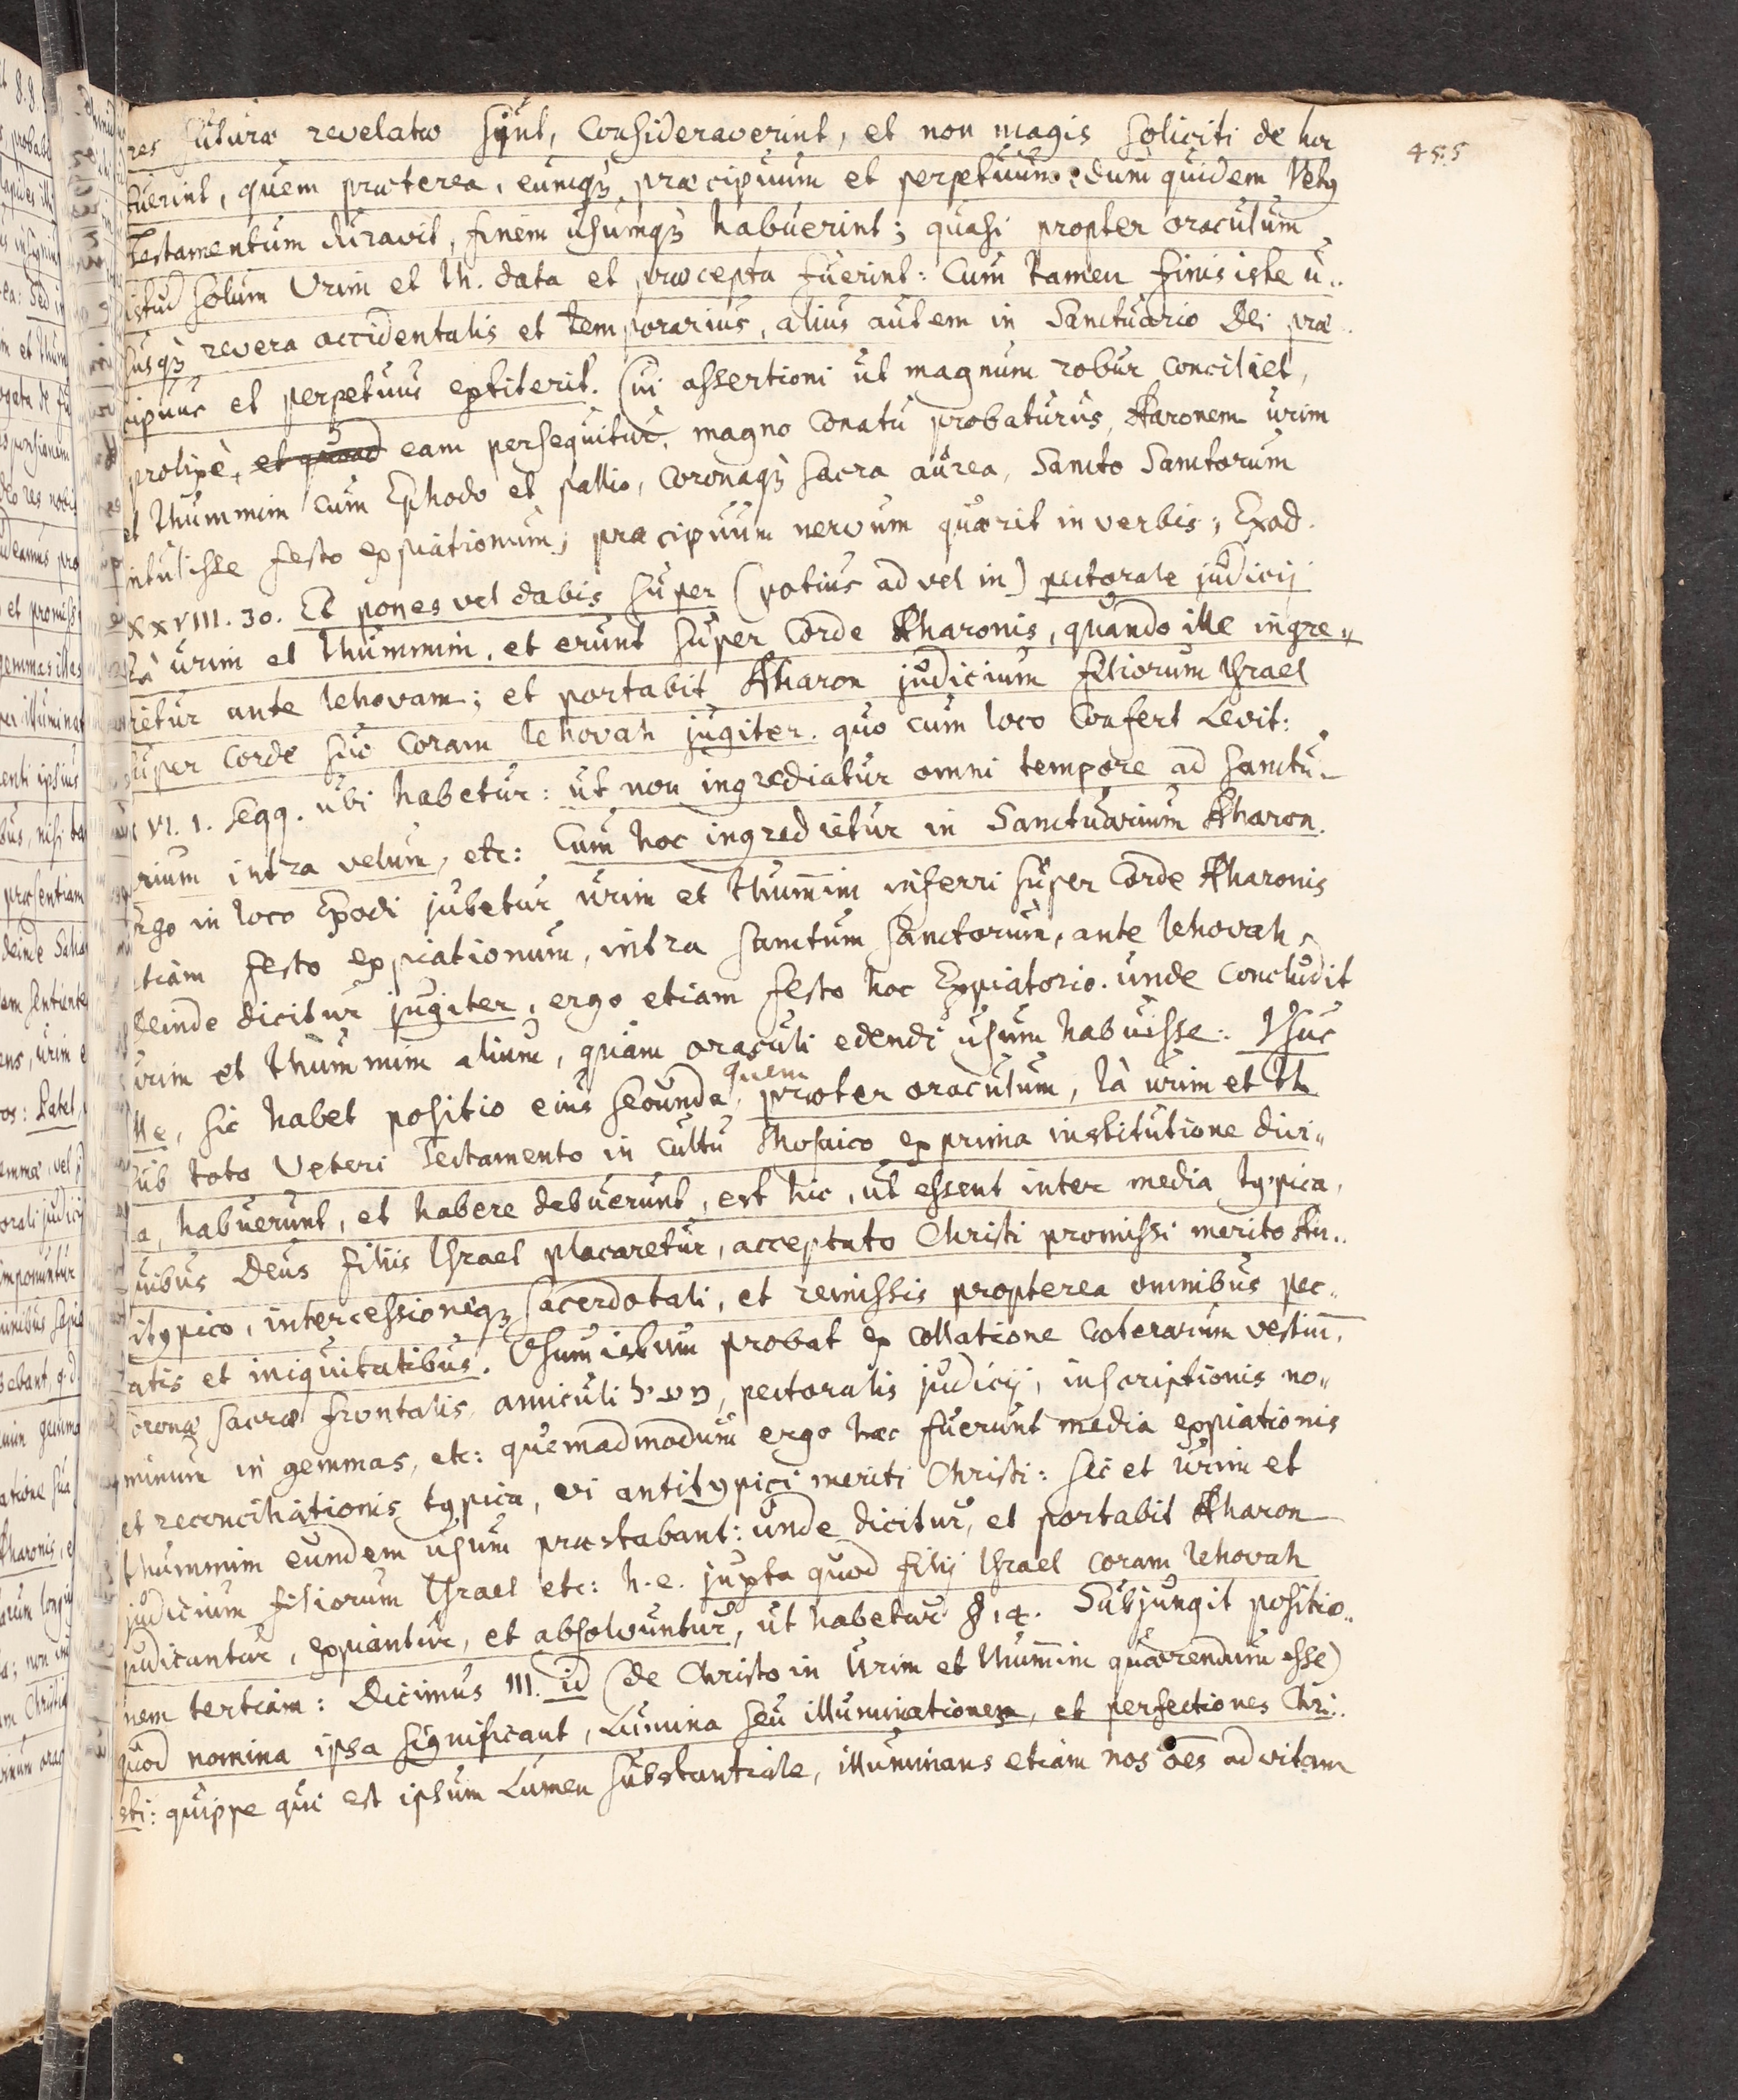 455
res futuræ revelatæ sint, consideraverint, et non magis soliciti de hoc
fuerint, quem præterea, eumqꝫ præcipuum et perpetuum, dum quidem Vetꝯ
Testamentum duravit, finem usumqꝫ habuerint; quasi propter oraculum
istud solum Urim et Th. data et præcepta fuerint: Cum tamen finis iste u..
susqꝫ revera accidentalis et temporarius, alius autem in Sanctuario Dei præ..
cipuus et perpetuus extiterit. Cui assertioni ut magnum robur conciliet,
prolixè, eam persequitur, magno conatu probaturus, Aaronem urim
et Thummim cum Ephodo et pallio, coronaqꝫ sacra aurea, Sancto Sanctorum
intulisse festo expiationum; præcipuum nervum quærit in verbis; Exod.
XXVIII. 30. Et pones vel dabis super (potius ad vel in) pectorale judicij
Tà urim et Thummim, et erunt super corde Aharonis, quando ille ingre..
dietur ante Iehovam; et portabit Aharon judicium filiorum Israel
super corde suo coram Iehovah jugiter. quo cum loco confert Levit:
XVI. 1. seqq. ubi habetur: ut non ingrediatur omni tempore ad sanctu..
arium intra velum, etc: Cum hoc ingredietur in Sanctuarium Aharon.
Ergo in loco Exodi jubetur urim et Thum̄im inferri super corde Aharonis
etiam festo expiationum, intra sanctum sanctorum, ante Iehovah,
Deinde dicitur jugiter, ergo etiam festo hoc Expiatorio. unde concludit
urim et Thummim alium, quam oraculi edendi usum habuisse: Usus
ille, sic habet positio eius secunda, quem præter oraculum, Tà urim et Th
sub toto Veteri Testamento in cultu Mosaico ex prima institutione divi..
na, habuerunt, et habere debuerunt, est hic, ut essent inter media typica,
quibus Deus filiis Israel placaretur, acceptato Christi promissi merito An..
titypico, intercessioneqꝫ sacerdotali, et remissis propterea omnibus pec..
catis et iniquitatibus. Usum istum probat ex collatione cæterarum vestiū,
coronæ sacræ frontalis, amiculi מעיל, pectoralis judicij, inscriptionis no..
minum in gemmas, etc: quemadmodum ergo hæc fuerunt media expiationis
et reconciliationis typica, vi antitypici meriti Christi: sic et urim et
thummim eundem usum præstabant: unde dicitur, et portabit Aharon
judicium filiorum Israel etc: h.e. juxta quod filij Israel coram Iehovah
judicantur, expiantur, et absolvuntur, ut habetur § 14. Subjungit positio..
nem tertiam: Dicimus III. id (de Christo in Urim et Thum̄im quærendum esse)
quod nomina ipsa significant, Lumina seu illuminationem, et perfectiones Chri..
sti: quippe qui est ipsum Lumen substantiale, illuminans etiam nos o͞es ad vitam